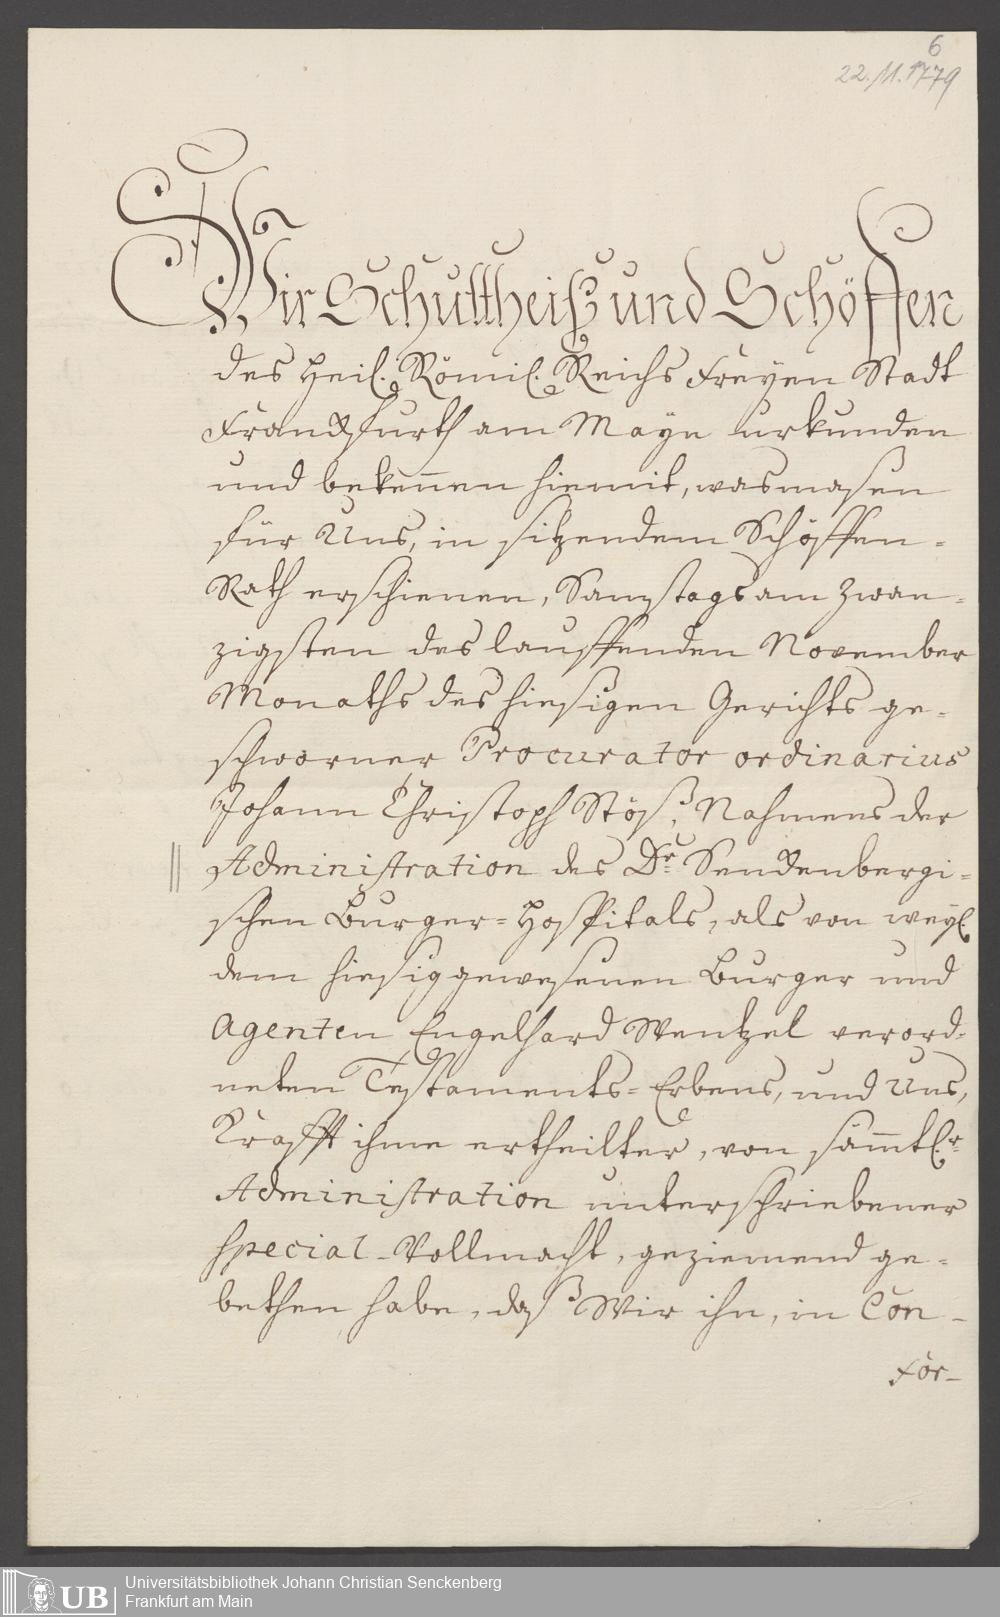 6
22.11.1779
Wir Schultheiß und Schöffen
des Heil. Römil. Reichs Freyen Stadt
Franckfurth am Mayn urkunden
und bekennen hiemit, wasmasen
für Uns, in sitzendem Schöffen-
Rath erschienen, Samstags am zwan-
zigsten des lauffenden November
Monaths des hiesigen Gerichts ge-
schworner Procurator ordinarius
Johann Christoph Stöß, Nahmens der
Administration des Dr. Senckenbergi-
schen Burger-Hospitals, als von weyl.
dem hiesig gewesenen Burger und
Agenten Engelhard Wentzel verord-
neten Testaments-Erbens, und Uns,
Krafft ihme ertheilter, von sämtlr.
Administration unterschriebener
special-Vollmacht, geziemend ge-
bethen habe, daß Wir ihn, in Con-
for-
UB Universitätsbibliothek Johann Christian Senckenberg
Frankfurt am Main